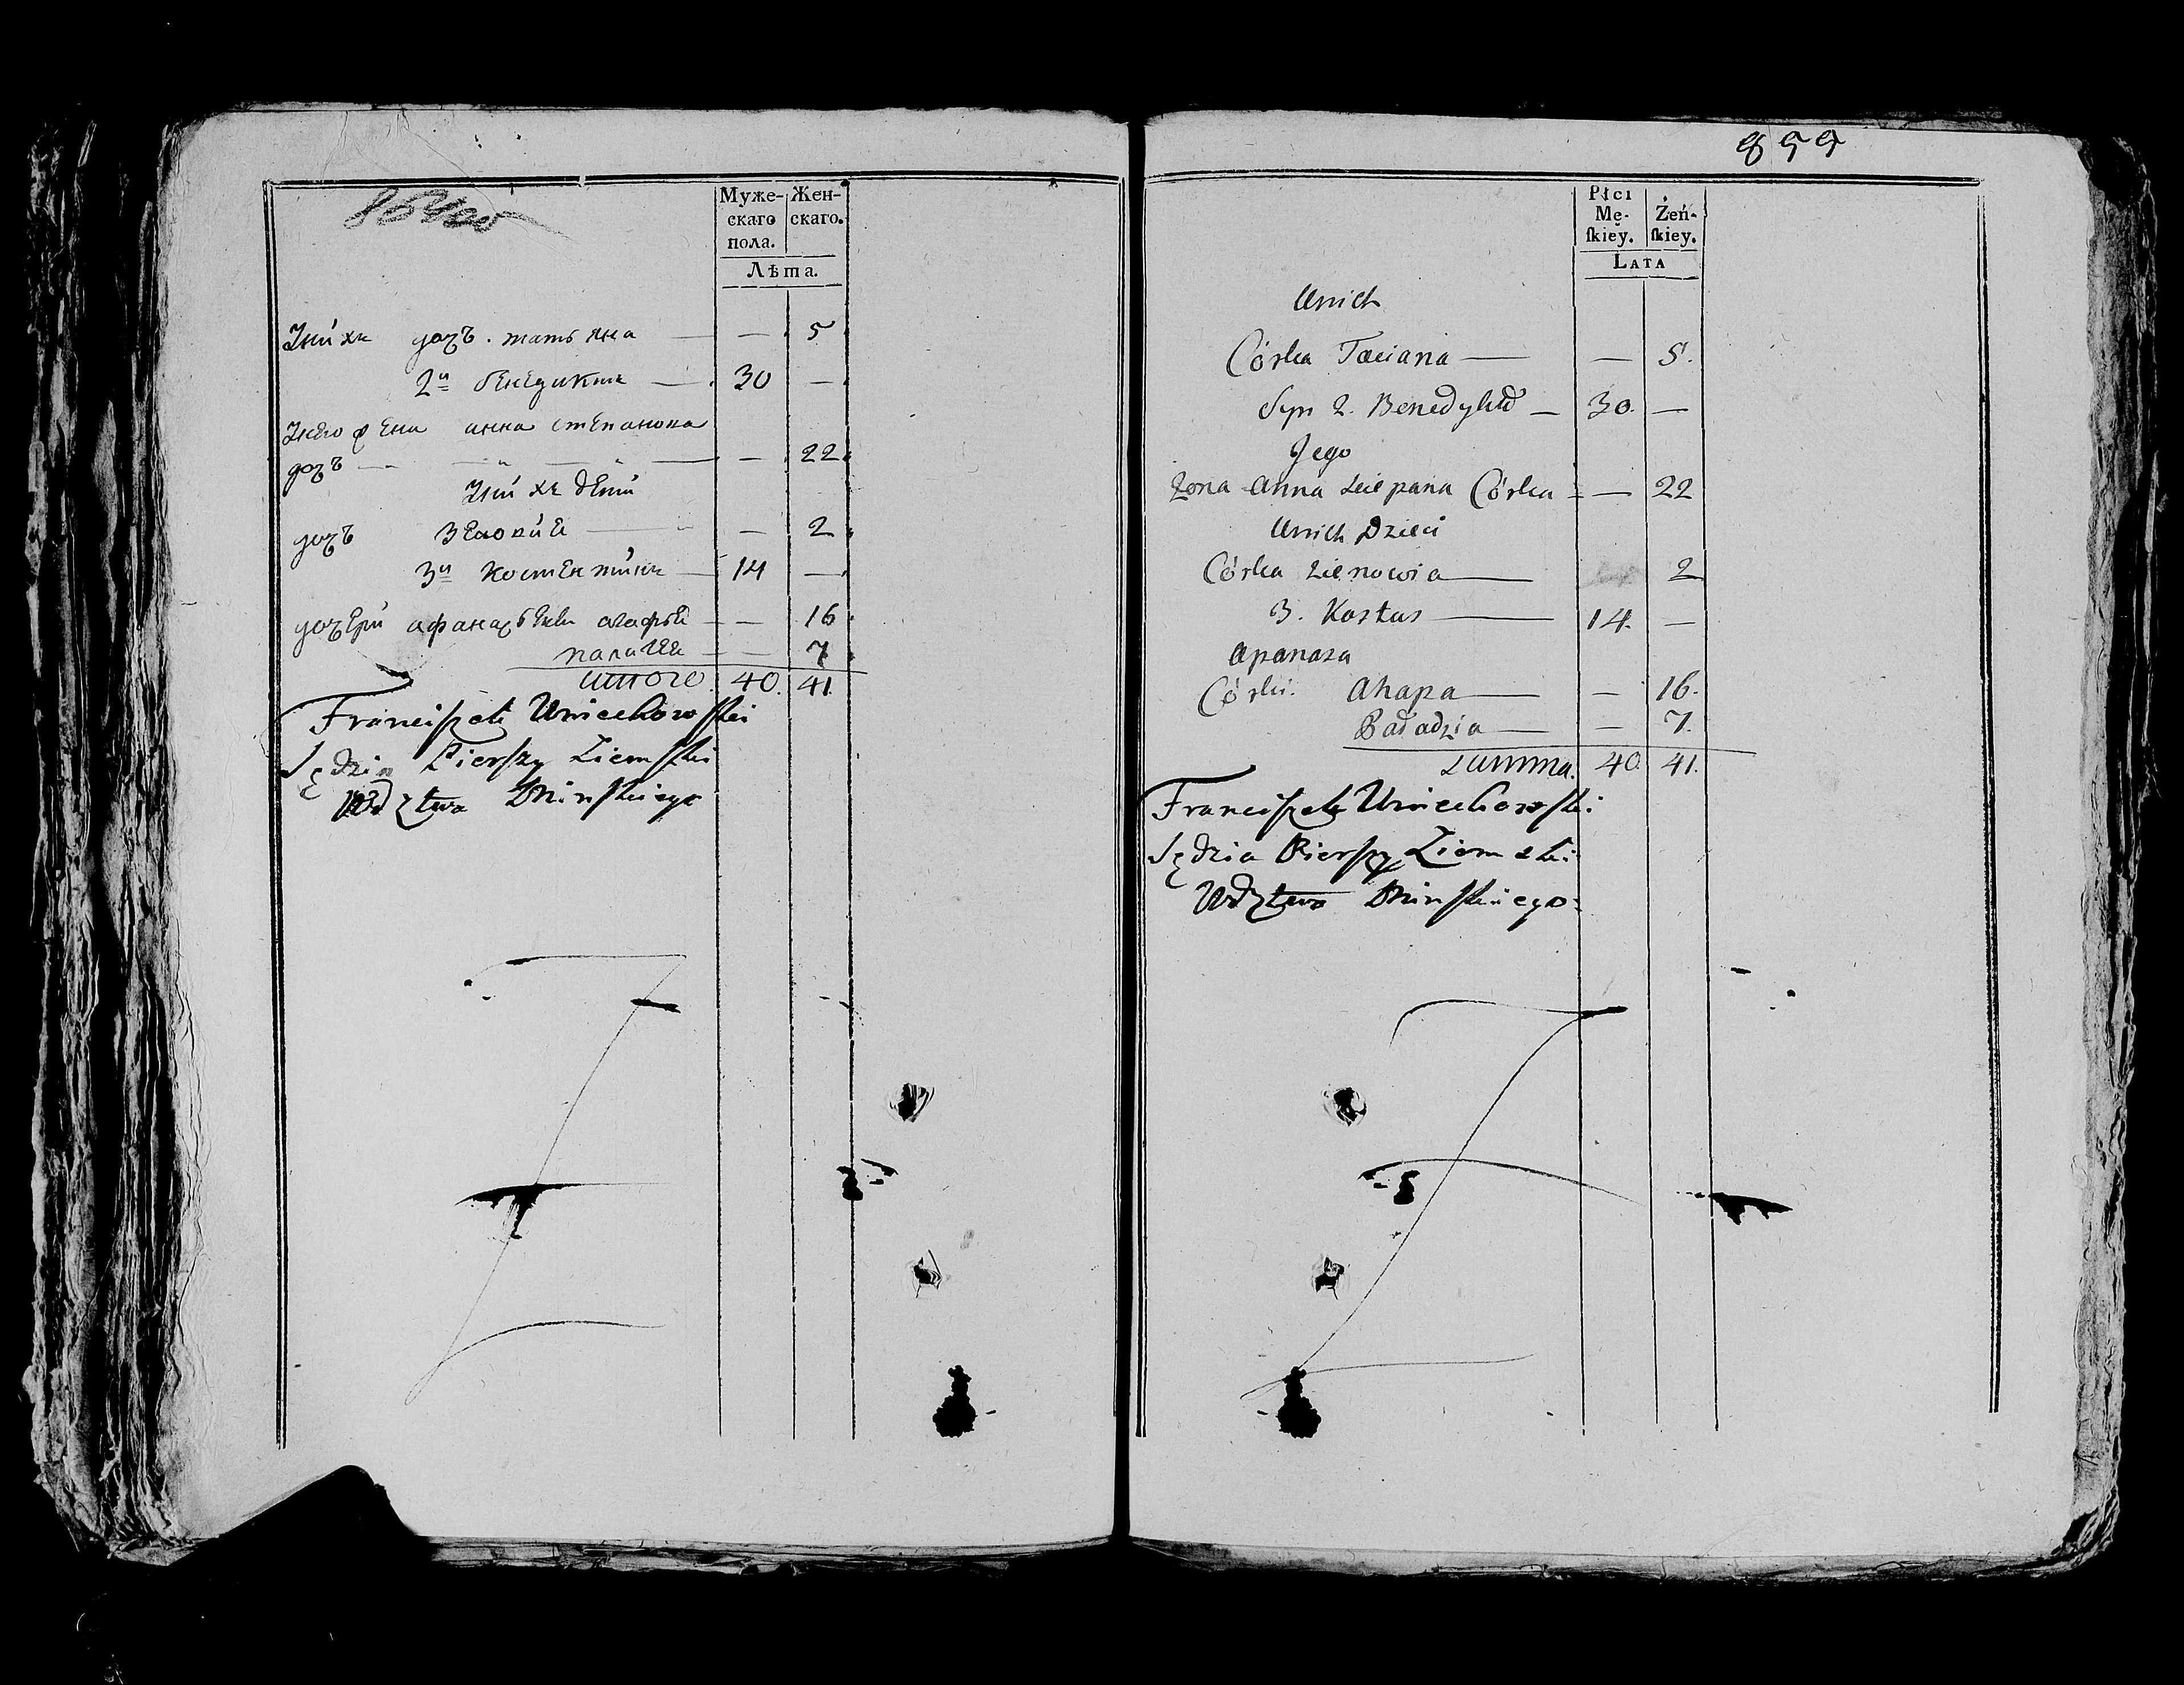 Муже-
скаго
пола.
Жен-
скаго.
Лѣта.
унихъ дочь. татьяна — — 5
2й бенедиктъ — 30 —
унего жена анна степанова
дочь — — 22
унихъ дети
дочь зеновия — — 2
3й костентинъ — 14 —
дочери афанасьевы агафья — — 16
палагея — — 7
итого. 40. 41.
Franciszek Uniechowski
Sędzia Pierszy Ziemski
Wdztwa Mińskiego
859
Płci
Mę-
skiey.
Żeń-
skiey.
LATA
Unich
Córka Taciana — — 5.
Syn 2. Benedykt — 30. —
Jego
Żona Anna Sciepana Córka — — 22
Unich Dzieci
Córka Zienowia — 2
3. Kostus — 14. —
Apanasa
Córki. Ahapa — — 16.
Paładzia — — 7.
Summa. 40. 41.
Franciszek Uniechowski
Sędzia Pierszy Ziemski
Wdztwa Mińskiego